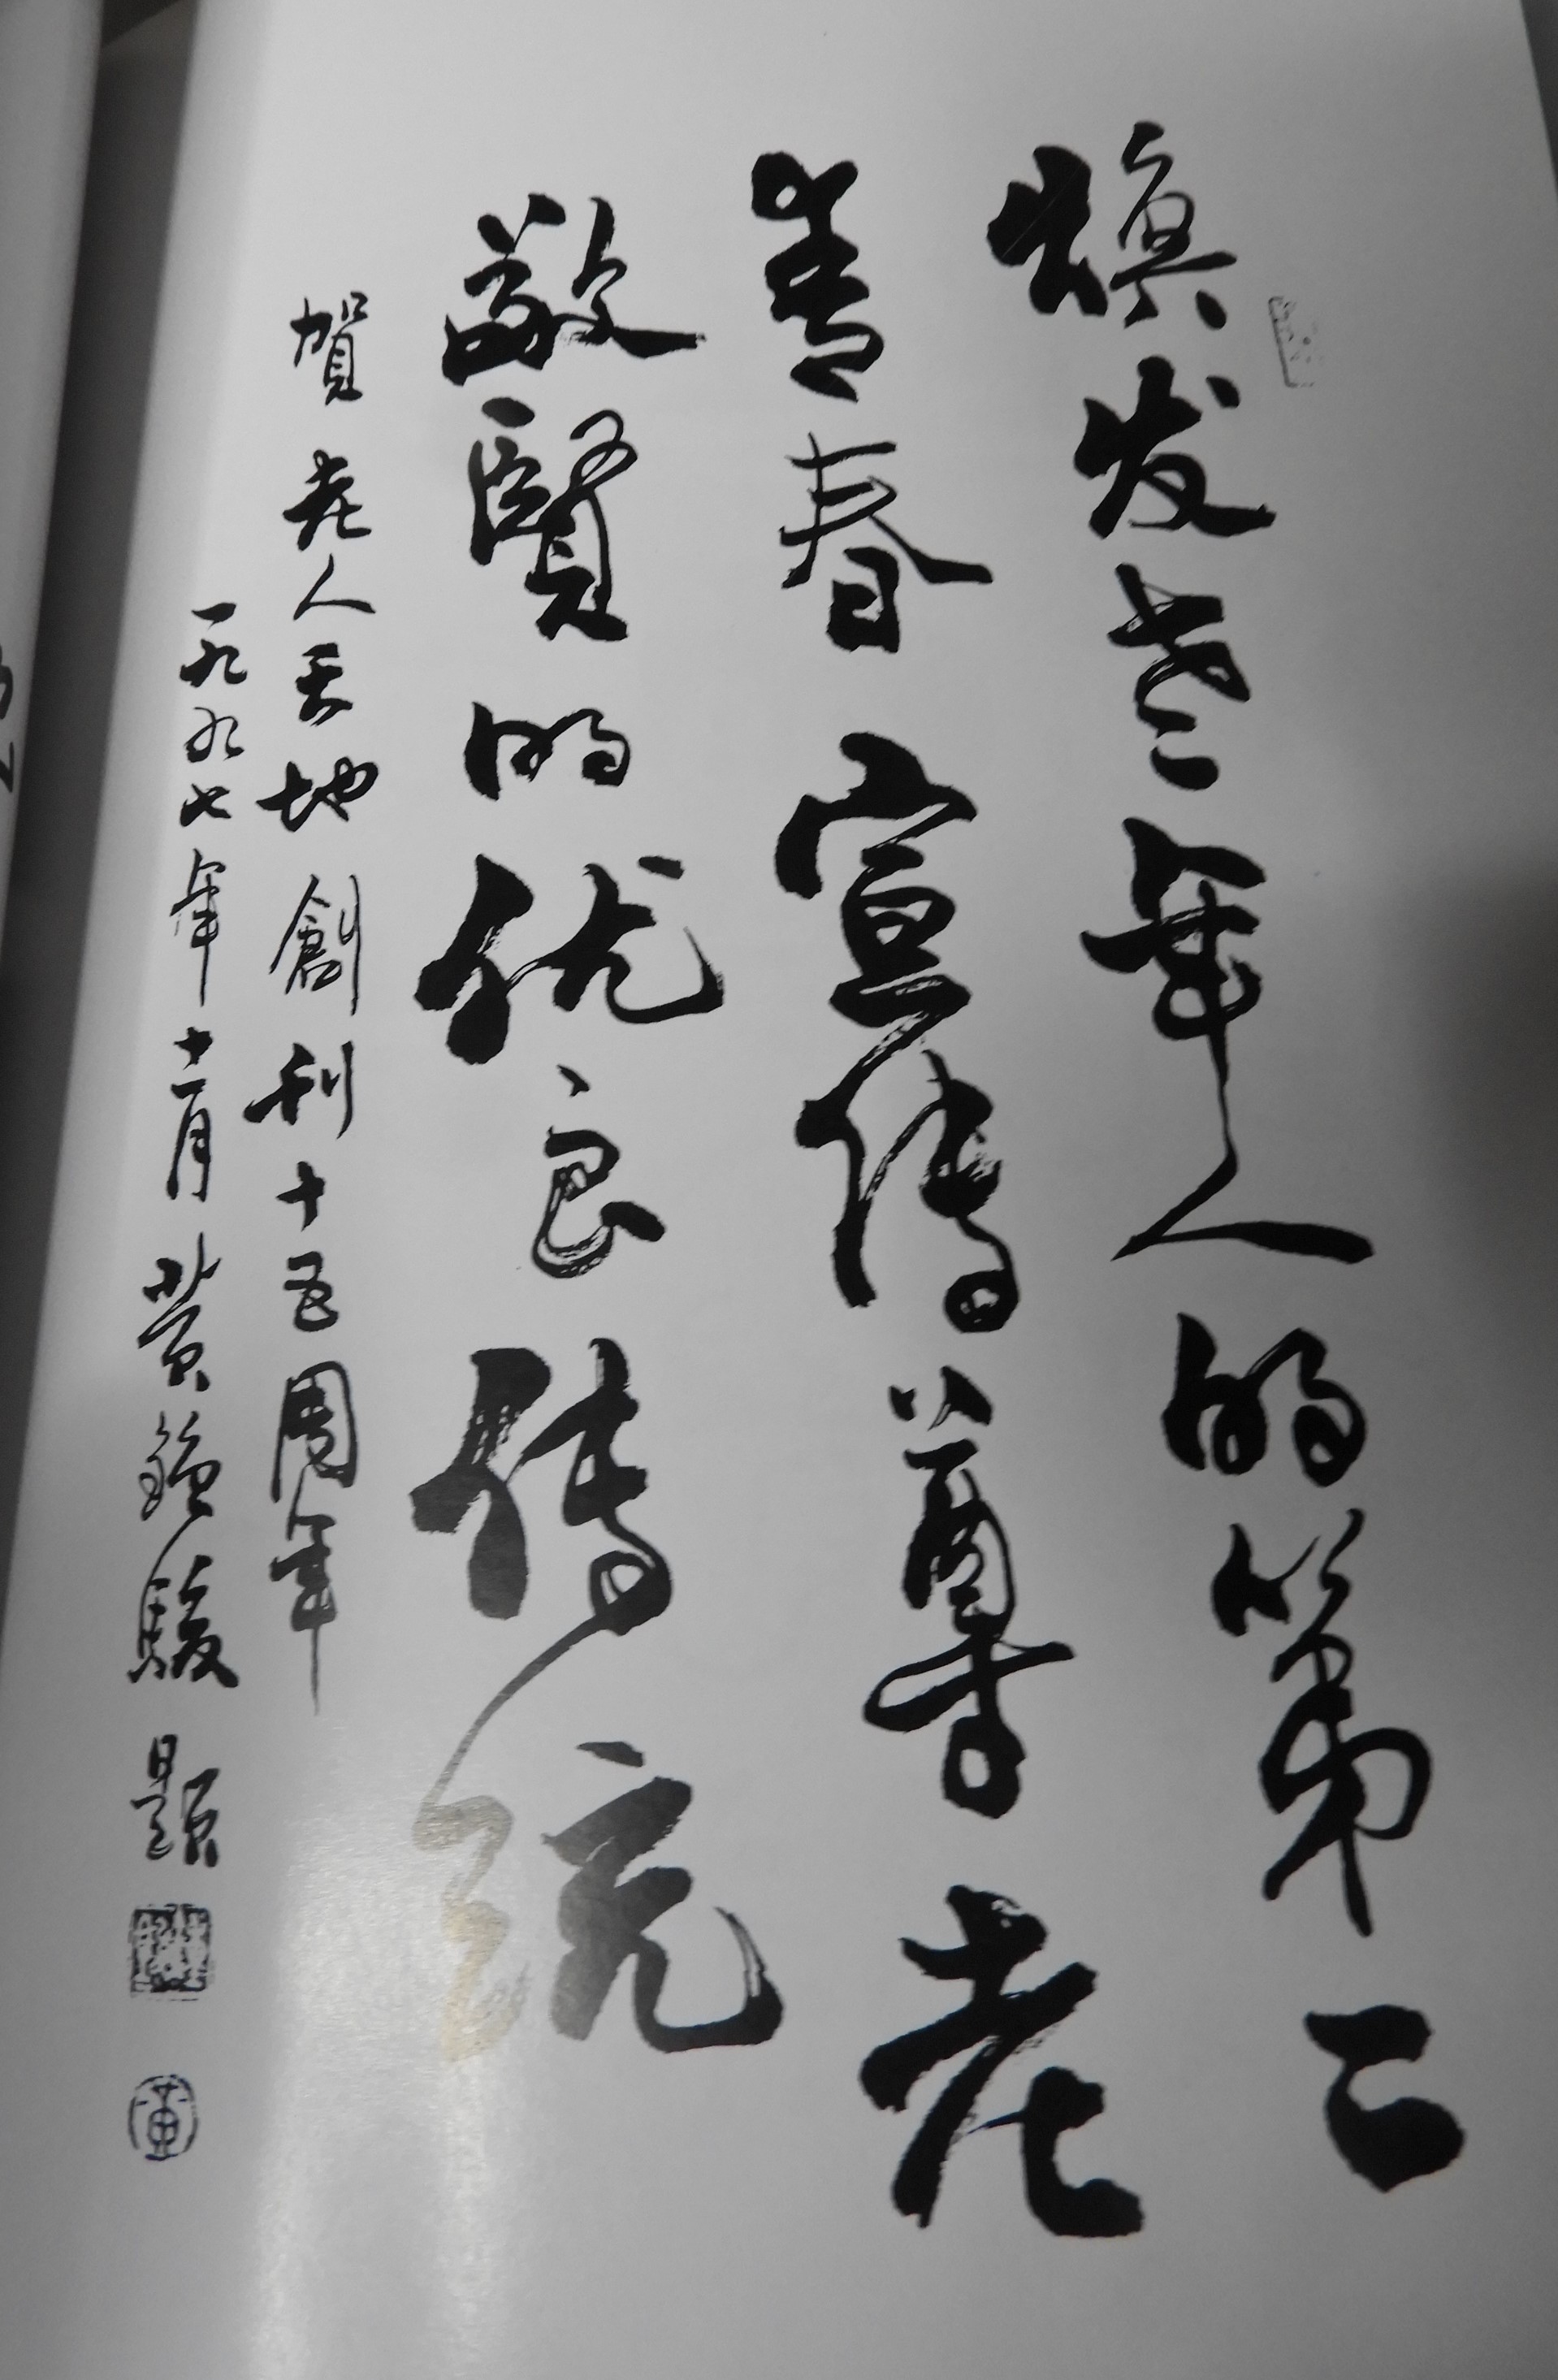 焕发老年人的第二
青春宣传尊老
敬贤的优良传统
賀老人天地創刊十五周年
一九九七年十一月黄鐘駿題
黄